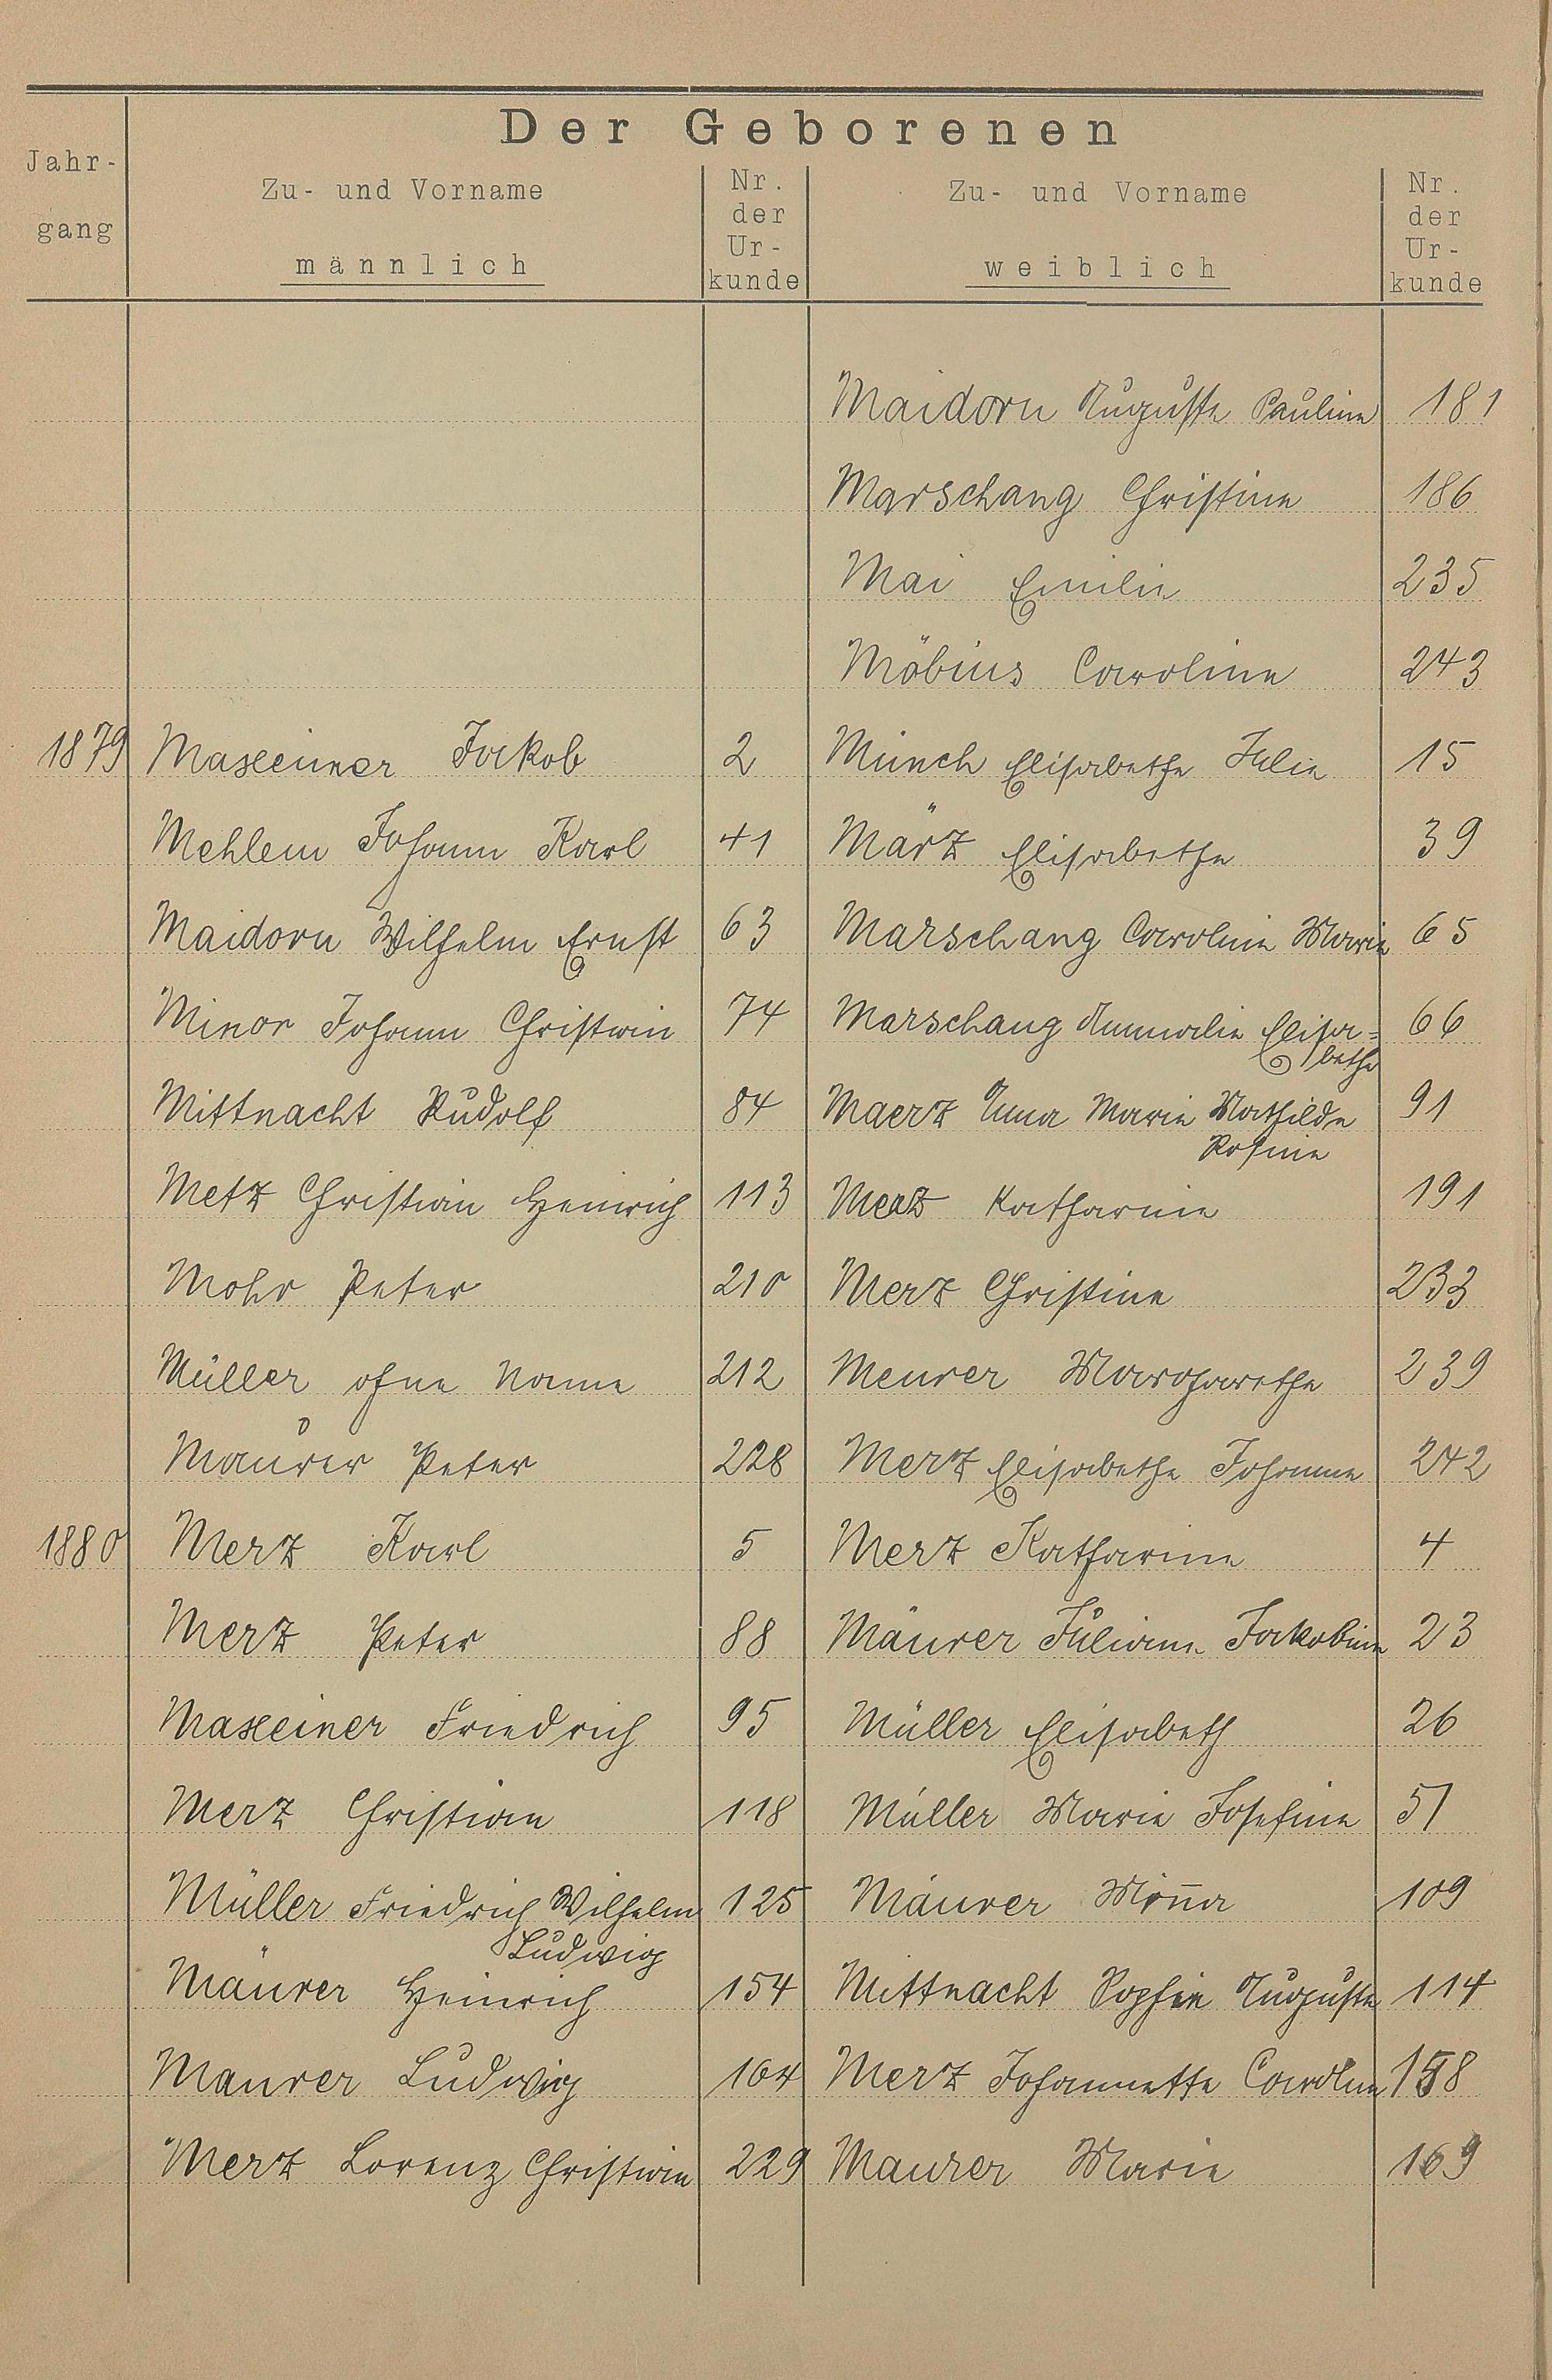 Der Geborenen
Jahr-
gang
Zu- und Vorname
männlich
Nr.
der
Ur-
kunde
Zu- und Vorname
weiblich
Nr.
der
Ur-
kunde
Maidorn Auguste Pauline 181
Marschang Christine 186
Mai Emilie 235
Möbius Caroline 243
1879 Maxeiner Jakob 2 Münch Elisabethe Julie 15
Mehlem Johann Karl 41 März Elisabethe 39
Maidorn Wilhelm Ernst 63 Marschang Caroline Marie 65
Minor Johann Christian 74 Marschang Annalie Elisa=
bethe 66
Mittnacht Rudolf 84 Maerz Anna Marie Mathilde 91
Rosine
Metz Christian Heinrich 113 Merz Katharine 191
Mohr Peter 210 Merz Christine 233
Müller ohne Name 212 Meurer Margarethe 239
Maurer Peter 228 Merz Elisabethe Johanne 242
1880 Merz Karl 5 Merz Katharine 4
Merz Peter 88 Mäurer Juliane Jakobine 23
Maxeiner Friedrich 95 Müller Elisabeth 26
Merz Christian 118 Müller Marie Josefine 51
Müller Friedrich Wilhelm 125 Mäurer Mina 109
Ludwig
Mäurer Heinrich 154 Mittnacht Sophie Auguste 114
Maurer Ludwig 164 Merz Johannette Caroline 158
Merz Lorenz Christian 229 Maurer Marie 169